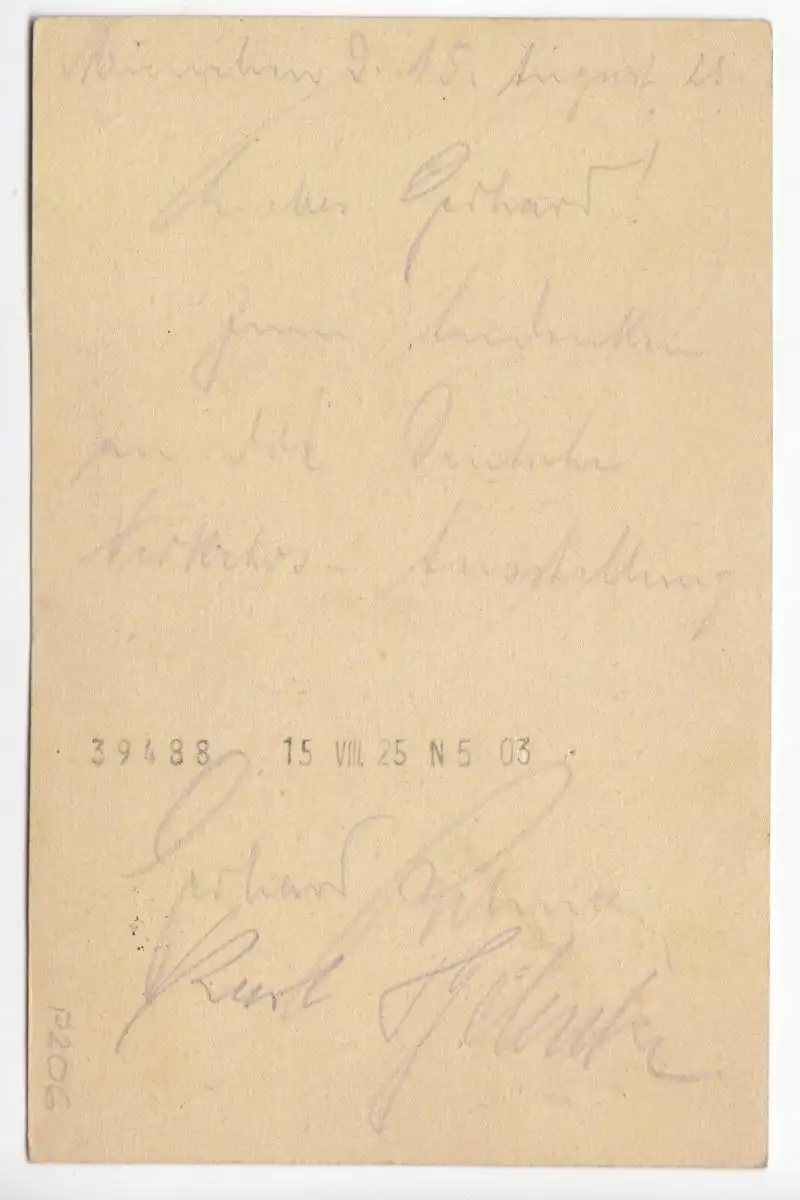 München d. 15. August 25.
Lieber Gerhard!
Zum Andenken
an die Deutsche
Verkehrs-Ausstellung
39488 15 VIII. 25 N 5 03
Gerhard
Kurt
P206